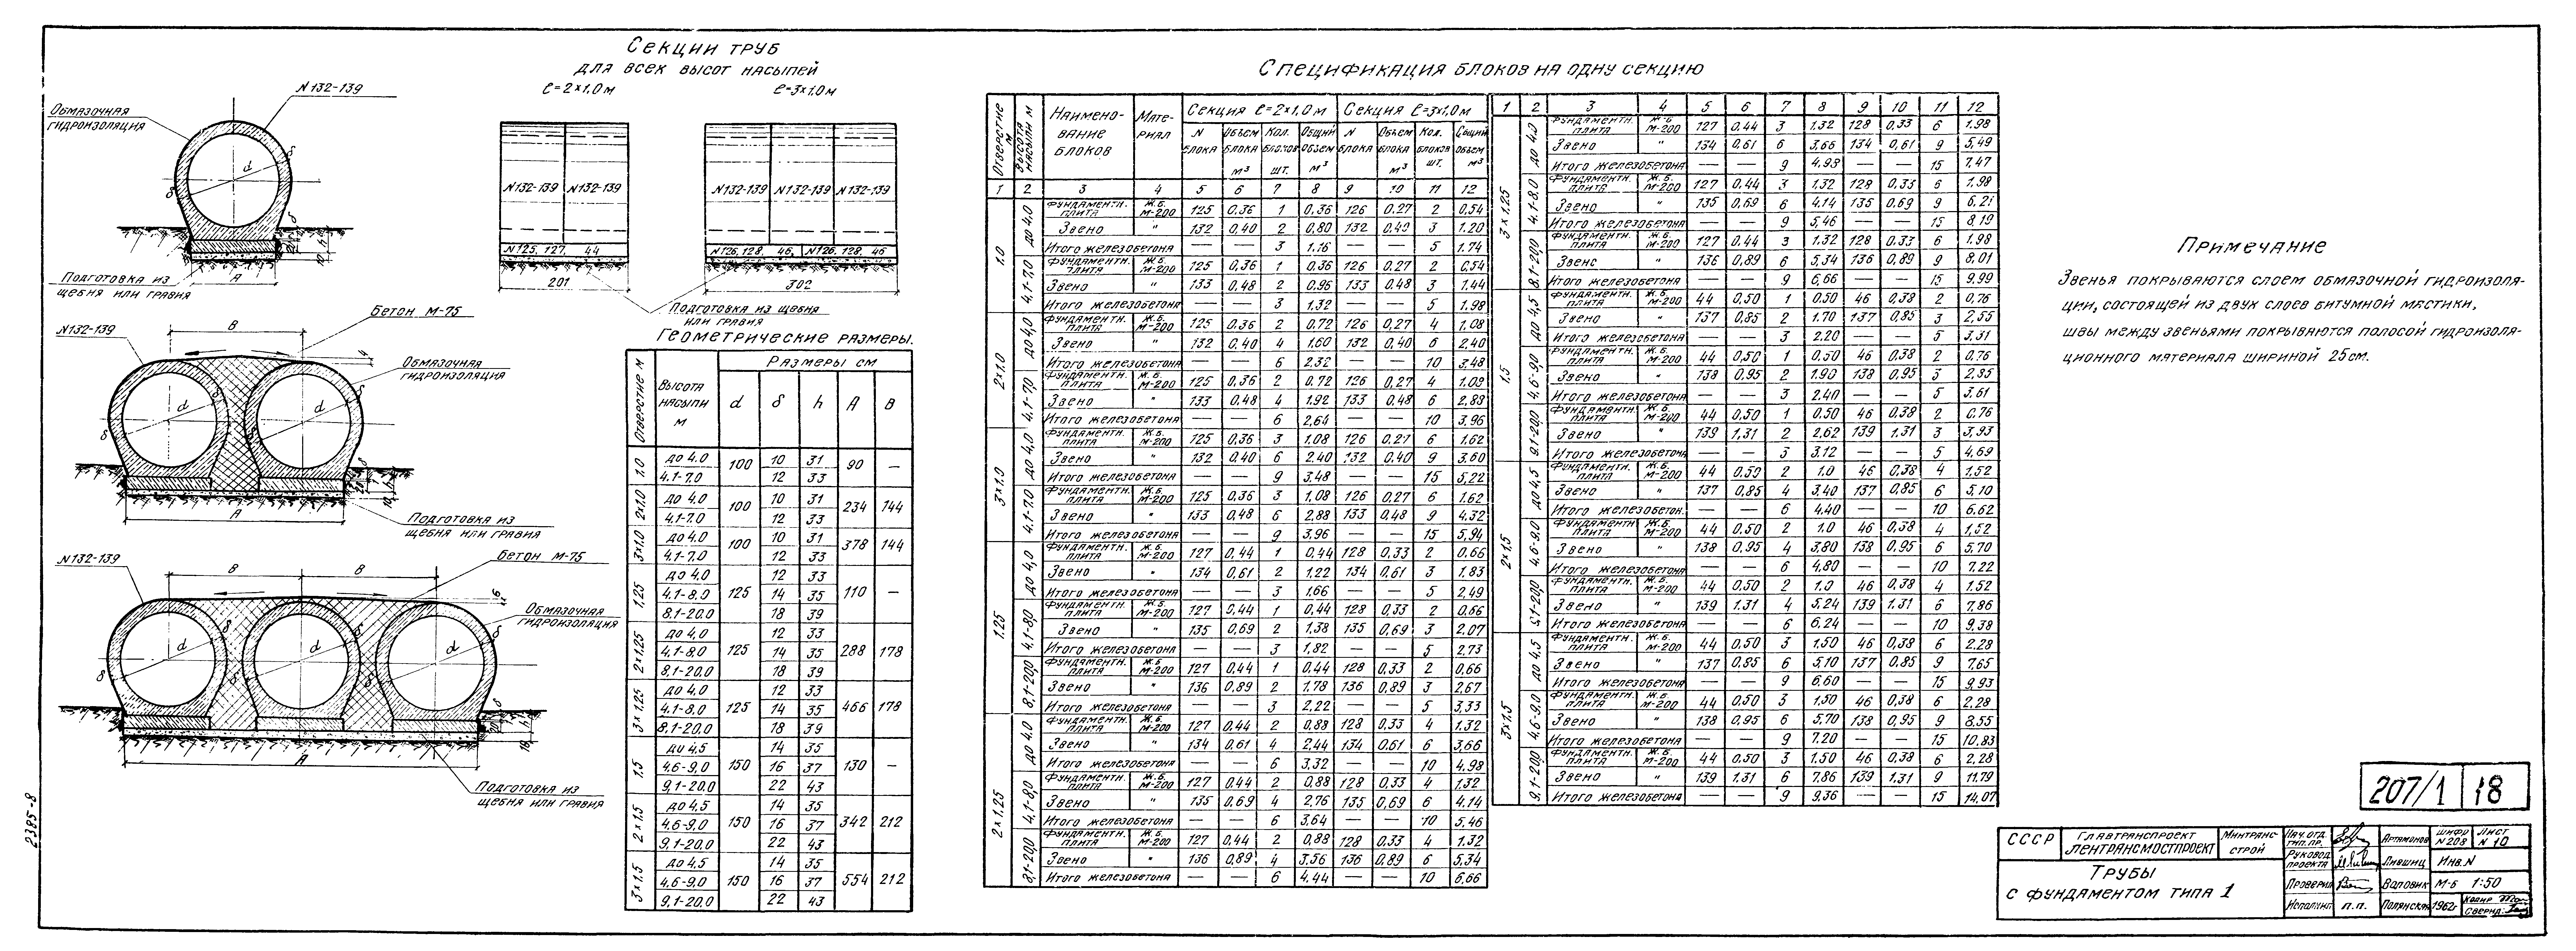 Секции труб
для всех высот насыпей
ℓ=2×1,0м ℓ=3×1,0м
N132-139
Обмазочная
гидроизоляция
d
δ
δ
A
Подготовка из
щебня или гравия
N132-139 N132-139
N125, 127, 44
201
N132-139 N132-139 N132-139
N126, 128, 46, N126, 128, 46
302
Подготовка из щебня
или гравия
Бетон М-75
N132-139
B
Обмазочная
гидроизоляция
d d
A
Подготовка из
щебня или гравия
Бетон М-75
N132-139
B B
Обмазочная
гидроизоляция
d d d
A
Подготовка из
щебня или гравия
Геометрические размеры.
Отверстие м Высота насыпи м Размеры см
d δ h A B
1,0 до 4.0 100 10 31 90 —
4.1-7.0 12 33
2×1.0 до 4.0 100 10 31 234 144
4.1-7.0 12 33
3×1.0 до 4.0 100 10 31 378 144
4.1-7.0 12 33
1,25 до 4.0 125 12 33 110 —
4.1-8.0 14 35
8.1-20.0 18 39
2×1.25 до 4.0 125 12 33 288 178
4.1-8.0 14 35
8.1-20.0 18 39
3×1.25 до 4.0 125 12 33 466 178
4.1-8.0 14 35
8.1-20.0 18 39
1.5 до 4,5 150 14 35 130 —
4.6-9,0 16 37
9,1-20.0 22 43
2×1.5 до 4,5 150 14 35 342 212
4.6-9.0 16 37
9,1-20.0 22 43
3×1.5 до 4,5 150 14 35 554 212
4,6-9.0 16 37
9,1-20.0 22 43
Спецификация блоков на одну секцию
Отверстие м Высота насыпи м Наименование блоков Материал Секция ℓ=2×1,0м Секция ℓ=3×1,0м
N блока Объем блока м³ Кол. блоков шт. Общий объем м³ N блока Объем блока м³ Кол. блоков шт. Общий объем м³
1 2 3 4 5 6 7 8 9 10 11 12
1.0 до 4.0 Фундаментн. плита Ж.б. М-200 125 0,36 1 0,36 126 0.27 2 0,54
Звено " 132 0,40 2 0,80 132 0,40 3 1.20
Итого железобетона — — 3 1.16 — — 5 1.74
4.1-7.0 Фундаментн. плита Ж.б. М-200 125 0,36 1 0,36 126 0.27 2 0,54
Звено " 133 0,48 2 0,96 133 0,48 3 1.44
Итого железобетона — — 3 1.32 — — 5 1,98
2×1.0 до 4,0 Фундаментн. плита Ж.б. М-200 125 0,36 2 0,72 126 0,27 4 1.08
Звено " 132 0,40 4 1,60 132 0,40 6 2,40
Итого железобетона — — 6 2.32 — — 10 3,48
4,1-7.0 Фундаментн. плита Ж.б. М-200 125 0,36 2 0,72 126 0,27 4 1.08
Звено " 133 0,48 4 1,92 133 0,48 6 2,88
Итого железобетона — — 6 2,64 — — 10 3,96
3×1.0 до 4.0 Фундаментн. плита Ж.б. М-200 125 0,36 3 1,08 126 0,27 6 1,62
Звено " 132 0,40 6 2,40 132 0,40 9 3,60
Итого железобетона — — 9 3.48 — — 15 5,22
4.1-7.0 Фундаментн. плита Ж.б. М-200 125 0,36 3 1,08 126 0,27 6 1,62
Звено " 133 0,48 6 2,88 133 0,48 9 4,32
Итого железобетона — — 9 3,96 — — 15 5,94
1.25 до 4,0 Фундаментн. плита Ж.б. М-200 127 0,44 1 0,44 128 0.33 2 0.66
Звено " 134 0,61 2 1,22 134 0,61 3 1.83
Итого железобетона — — 3 1.66 — — 5 2,49
4.1-8.0 Фундаментн. плита Ж.б. М-200 127 0,44 1 0,44 128 0.33 2 0,66
Звено " 135 0.69 2 1,38 135 0,69 3 2.07
Итого железобетона — — 3 1,82 — — 5 2,73
8.1-20.0 Фундаментн. плита Ж.б. М-200 127 0,44 1 0,44 128 0.33 2 0,66
Звено " 136 0,89 2 1,78 136 0,89 3 2,67
Итого железобетона — — 3 2.22 — — 5 3,33
2×1.25 до 4.0 Фундаментн. плита Ж.б. М-200 127 0.44 2 0,88 128 0,33 4 1.32
Звено " 134 0.61 4 2,44 134 0,61 6 3,66
Итого железобетона — — 6 3,32 — — 10 4,98
4.1-8,0 Фундаментн. плита Ж.б. М-200 127 0.44 2 0.88 128 0,33 4 1.32
Звено " 135 0.69 4 2,76 135 0,69 6 4.14
Итого железобетона — — 6 3,64 — — 10 5,46
8.1-20.0 Фундаментн. плита Ж.б. М-200 127 0,44 2 0,88 128 0,33 4 1.32
Звено " 136 0,89 4 3,56 136 0,89 6 5,34
Итого железобетона — — 6 4.44 — — 10 6,66
1 2 3 4 5 6 7 8 9 10 11 12
3×1.25 до 4.0 Фундаментн. плита Ж.б. М-200 127 0,44 3 1.32 128 0,33 6 1.98
Звено " 134 0,61 6 3,66 134 0,61 9 5,49
Итого железобетона — — 9 4.98 — — 15 7.47
4.1-8.0 Фундаментн. плита Ж.б. М-200 127 0,44 3 1.32 128 0,33 6 1.98
Звено " 135 0,69 6 4.14 135 0.69 9 6,21
Итого железобетона — — 9 5,46 — — 15 8,19
8.1-20.0 Фундаментн. плита Ж.б. М-200 127 0.44 3 1.32 128 0.33 6 1.98
Звено " 136 0,89 6 5,34 136 0,89 9 8,01
Итого железобетона — — 9 6,66 — — 15 9,99
1.5 до 4,5 Фундаментн. плита Ж.б. М-200 44 0,50 1 0.50 46 0,38 2 0,76
Звено " 137 0,85 2 1.70 137 0,85 3 2,55
Итого железобетона — — 3 2.20 — — 5 3,31
4.6-9,0 Фундаментн. плита Ж.б. М-200 44 0,50 1 0,50 46 0,38 2 0,76
Звено " 138 0,95 2 1.90 138 0,95 3 2,85
Итого железобетона — — 3 2.40 — — 5 3.61
9.1-20.0 Фундаментн. плита Ж.б. М-200 44 0,50 1 0.50 46 0.38 2 0,76
Звено " 139 1,31 2 2,62 139 1.31 3 3,93
Итого железобетона — — 3 3.12 — — 5 4,69
2×1.5 до 4,5 Фундаментн. плита Ж.б. М-200 44 0.50 2 1.0 46 0,38 4 1.52
Звено " 137 0,85 4 3,40 137 0,85 6 5,10
Итого железобетон. — — 6 4.40 — — 10 6.62
4.6-9.0 Фундаментн. плита Ж.б. М-200 44 0,50 2 1.0 46 0,38 4 1,52
Звено " 138 0,95 4 3,80 138 0.95 6 5,70
Итого железобетона — — 6 4,80 — — 10 7.22
9.1-20.0 Фундаментн. плита Ж.б. М-200 44 0.50 2 1.0 46 0,38 4 1.52
Звено " 139 1.31 4 5,24 139 1.31 6 7,86
Итого железобетона — — 6 6.24 — — 10 9,38
3×1.5 до 4,5 Фундаментн. плита Ж.б. М-200 44 0,50 3 1,50 46 0,38 6 2.28
Звено " 137 0,85 6 5,10 137 0,85 9 7,65
Итого железобетона — — 9 6.60 — — 15 9,93
4.6-9.0 Фундаментн. плита Ж.б. М-200 44 0,50 3 1,50 46 0,38 6 2,28
Звено " 138 0,95 6 5,70 138 0,95 9 8,55
Итого железобетона — — 9 7.20 — — 15 10,83
9.1-20.0 Фундаментн. плита Ж.б. М-200 44 0.50 3 1.50 46 0,38 6 2,28
Звено " 139 1.31 6 7.86 139 1.31 9 11.79
Итого железобетона — — 9 9.36 — — 15 14,07
Примечание
Звенья покрываются слоем обмазочной гидроизоля-
ции, состоящей из двух слоев битумной мастики,
швы между звеньями покрываются полосой гидроизоля-
ционного материала шириной 25см.
207/1 18
СССР Главтранспроект Ленгтрансмостпроект Минтрансстрой
Трубы
с фундаментом типа 1
Нач. отд. тип.пр. Артамонов Шифр N 208 Лист N 10
Руковод. проекта Лившиц Инв.N
Проверил Валовик М-б 1:50
Исполнил п.п. Полянская 1962г
2385-8